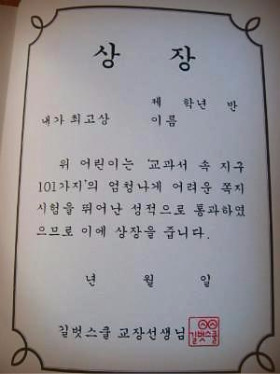 상 장
제 학년 반
내가 최고상 이름
위 어린이는 '교과서 속 지구
101가지'의 엄청나게 어려운 쪽지
시험을 뛰어난 성적으로 통과하였
으므로 이에 상장을 줍니다.
년 월 일
길벗스쿨 교장선생님
길벗스쿨